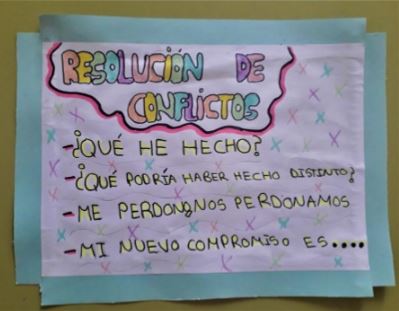 RESOLUCIÓN DE
CONFLICTOS
-¿QUÉ HE HECHO?
-¿QUÉ PODRÍA HABER HECHO DISTINTO?
-ME PERDONO, NOS PERDONAMOS
-MI NUEVO COMPROMISO ES....